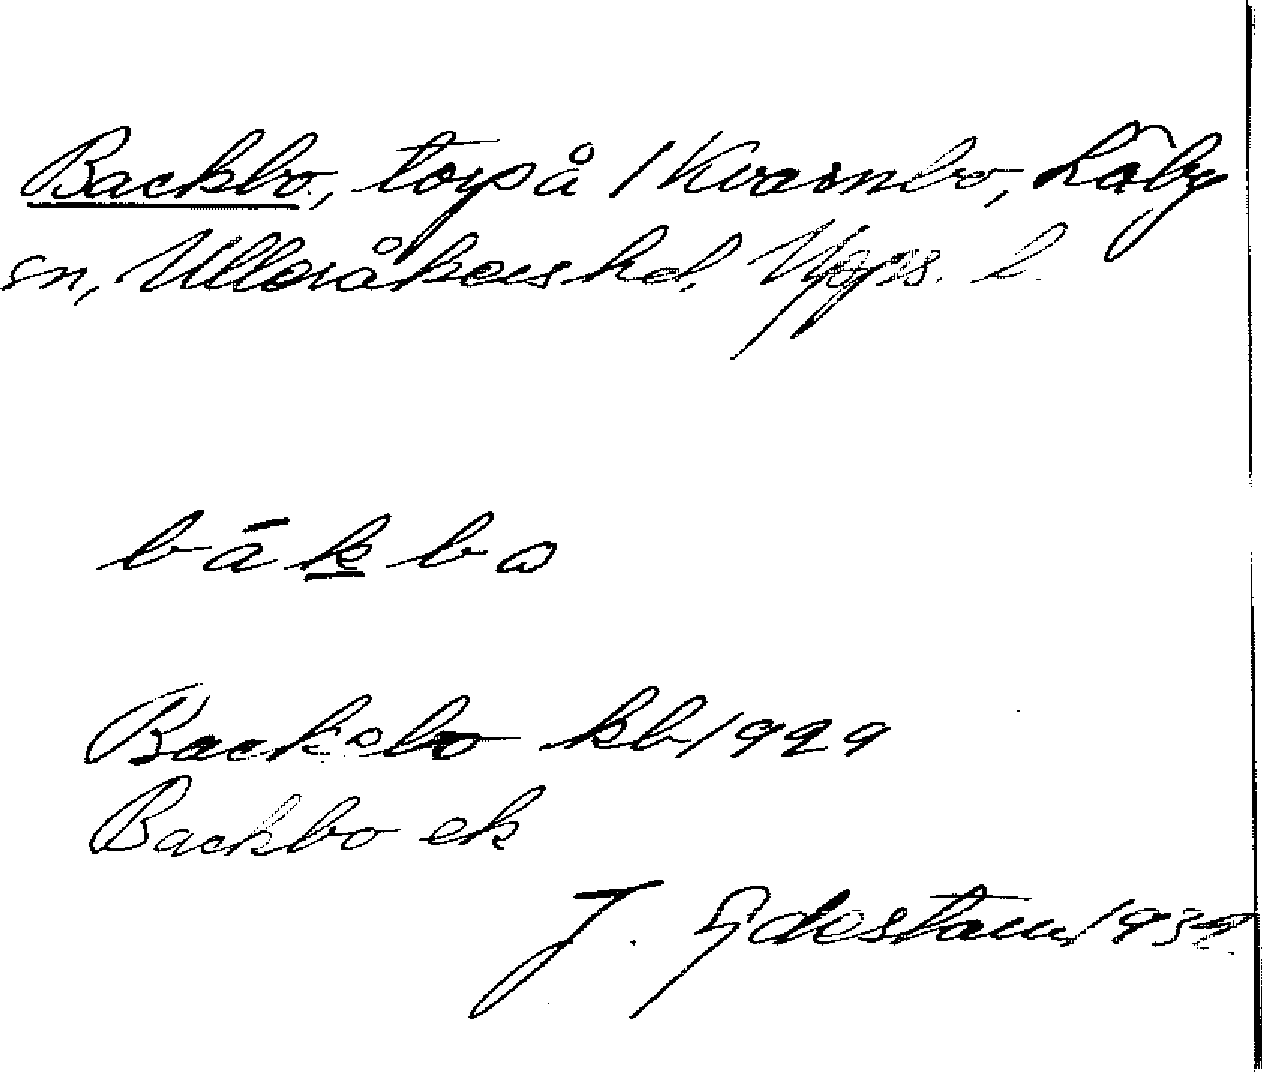 Backbo, torp å 1 Kvarnbo, Läby
sn, Ulleråkers hd, Upps. l.
bākbo
Backebo kb 1929
Backbo ek
J. Götestam 1939